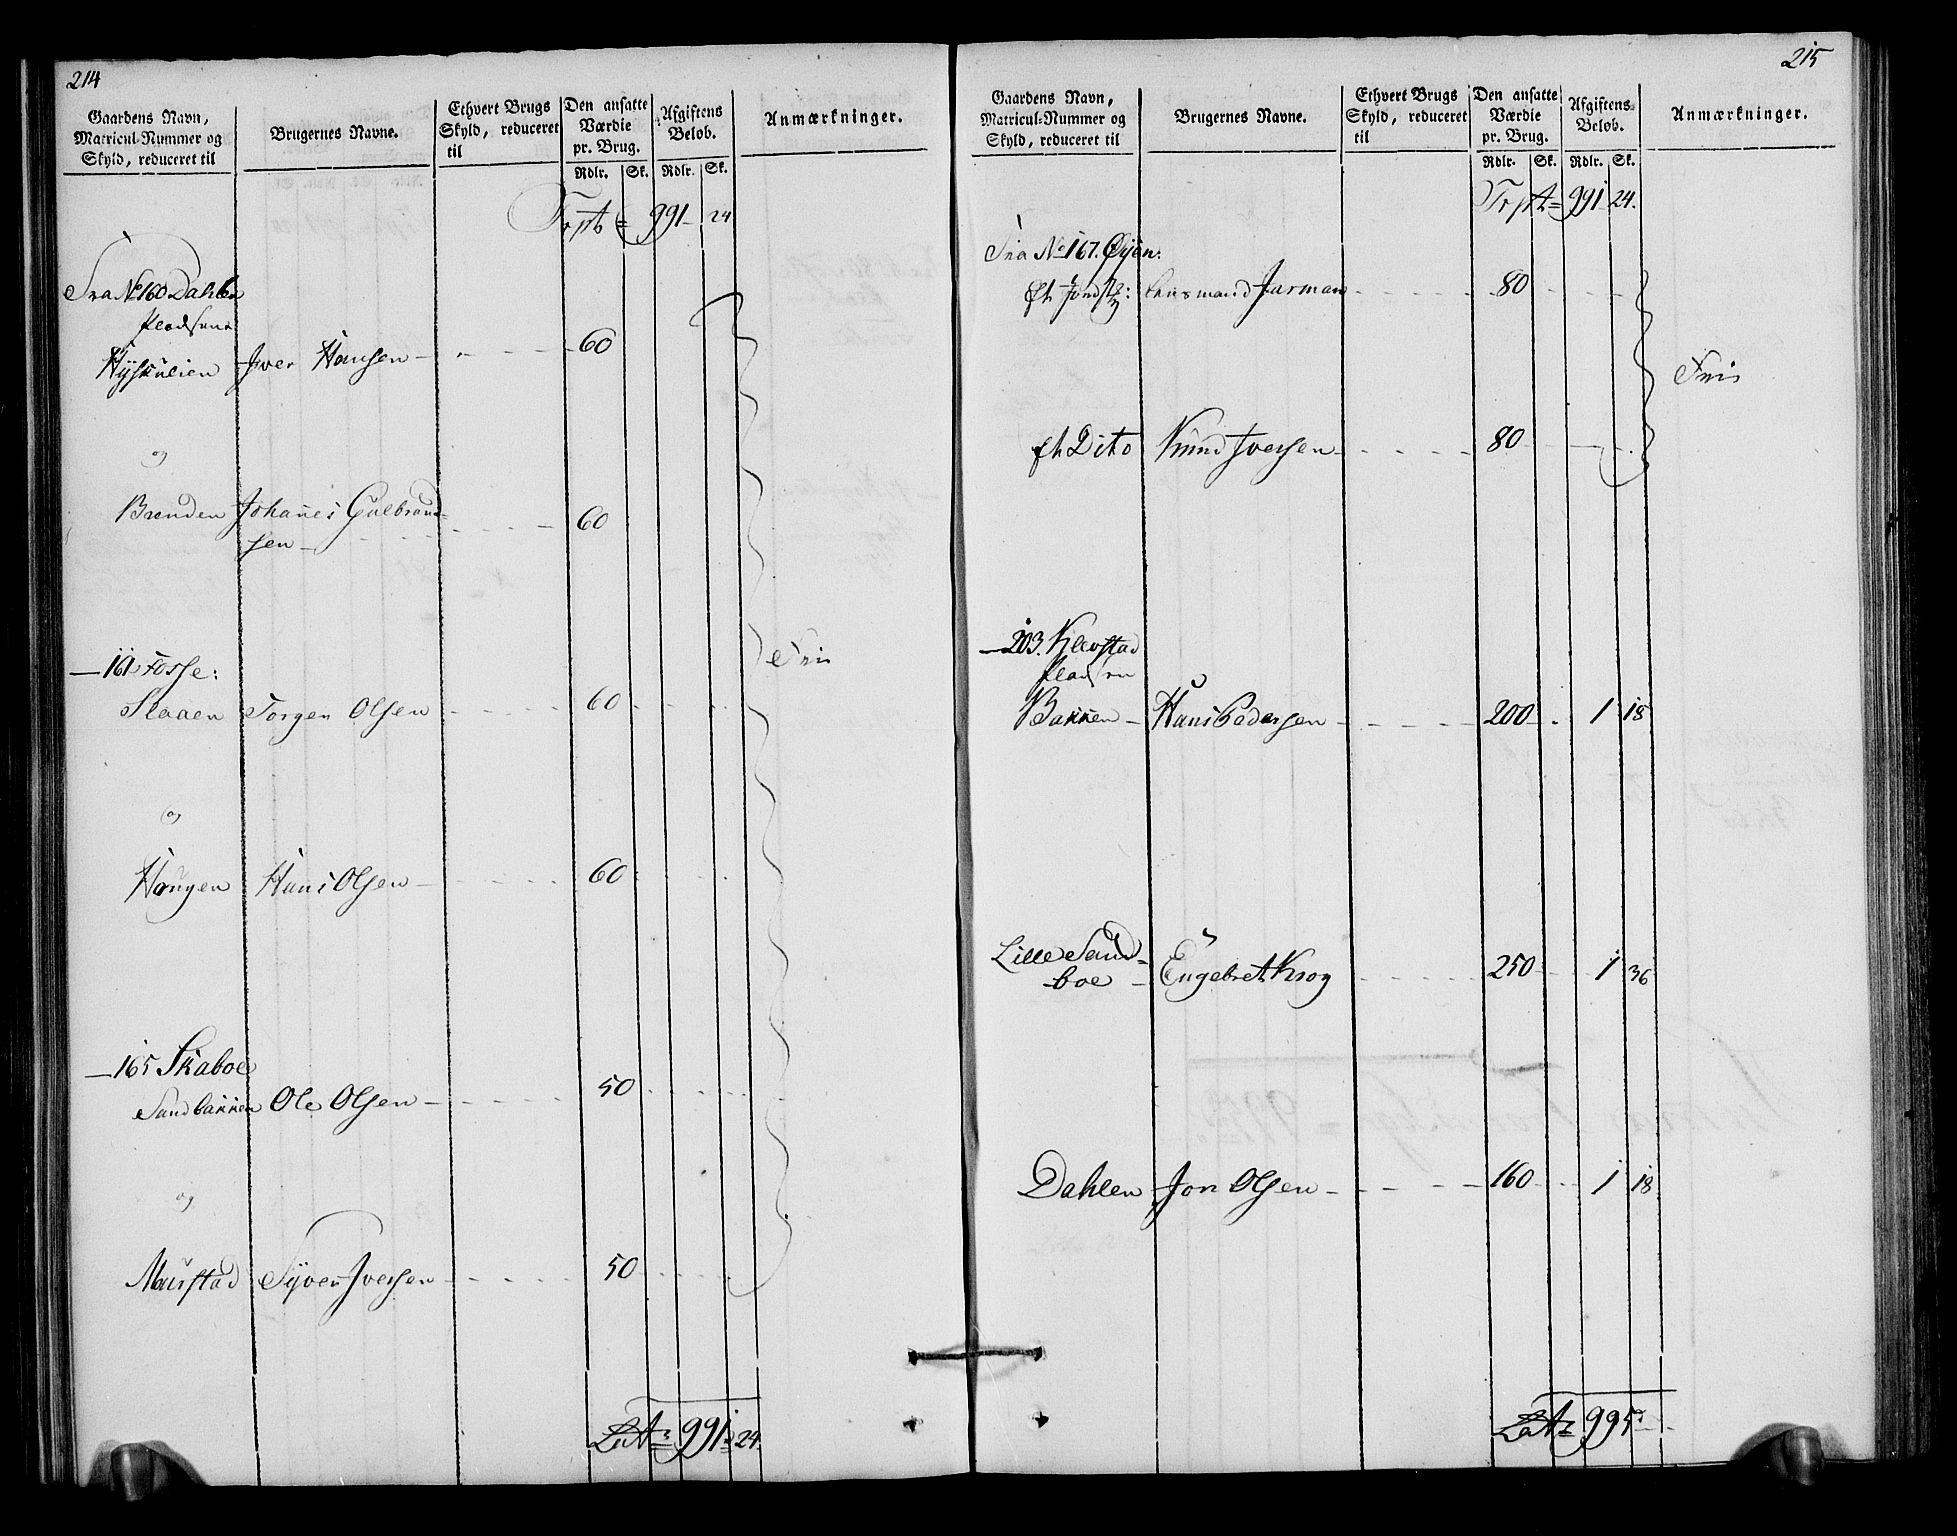 214
Gaardens Navn,
Matricul-Nummer og
Skyld, reduceret til
Brugernes Navne.
Ethvert Brugs
Skyld, reduceret
til
Den ansatte
Værdie
pr. Brug.
Afgiftens
Beløb.
Anmærkninger.
Rdlr. Sk. Rdlr. Sk.
Trspt = 991 24
Fra No 160 Dahlen
Pladsene
Iver Hansen 60
og
Brenden Johanes Gulbrand-
sen 60
161 Fosse:
Slaaen Torgen Olsen 60 Frie
og
Haugen Hans Olsen 60
165 Skaboe
Sandbakken Ole Olsen 50
og
Maurstad Syver Iversen 50
Lat = 991 24
215
Gaardens Navn,
Matricul-Nummer og
Skyld, reduceret til
Brugernes Navne.
Ethvert Brugs
Skyld, reduceret
til
Den ansatte
Værdie
pr. Brug.
Afgiftens
Beløb.
Anmærkninger.
Rdlr. Sk. Rdlr. Sk.
Trspt = 991 24.
Fra No 167. Øyen:
Lensmand Jarman 80
Frie
et Dito Knud Iversen 80
203. Klevstad
Pladsen
Bakken Hans Pedersen 200 1 18
Lille Sand-
boe Engebret Krog 250 1 36
Dahlen Jon Olsen 160 1 18
Lat = 995